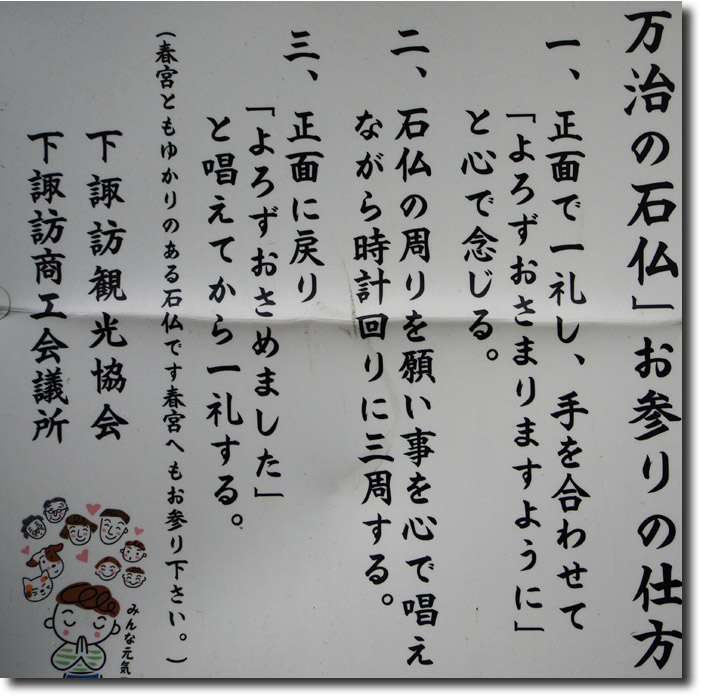 万治の石仏」お参りの仕方
一、正面で一礼し、手を合わせて
「よろずおさまりますように」
と心で念じる。
二、石仏の周りを願い事を心で唱え
ながら時計回りに三周する。
三、正面に戻り
「よろずおさめました」
と唱えてから一礼する。
(春宮ともゆかりのある石仏です春宮へもお参り下さい。)
下諏訪観光協会
下諏訪商工会議所
みんな元気